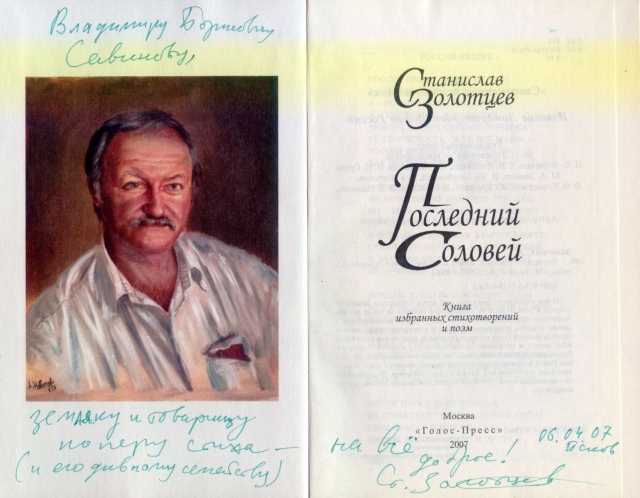 Владимиру Борисовичу
Савинову,
земляку и товарищу
по перу стиха —
(и его дивному семейству)
Станислав
Золотцев
Последний
Соловей
Книга
избранных стихотворений
и поэм
Москва
«Голос-Пресс»
2007
на всё
доброе!
06.04.07
Псков
Ст. Золотцев